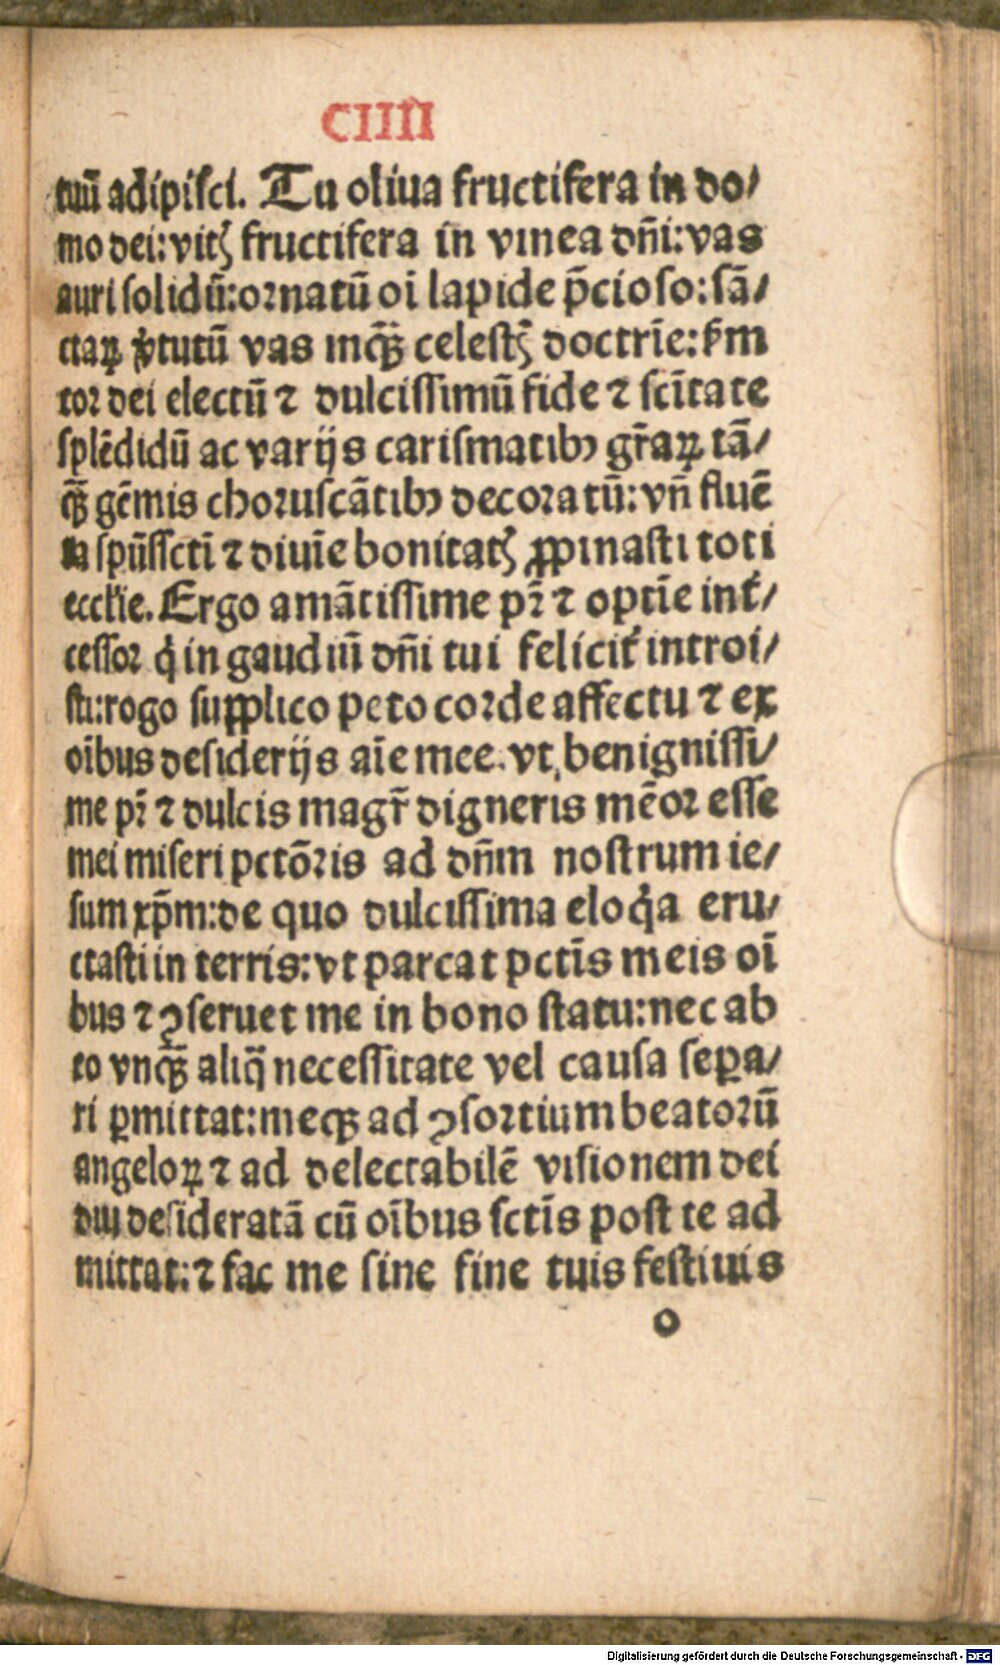 CIIII
tuū adipisci. Tu oliua fructifera in do/
mo dei: vitꝭ fructifera in vinea dñi: vas
auri solidū: ornatū oī lapide p̄cioso: sā/
ctaꝝ v̓tutū vas inqꝫ̄ celestꝭ doctrīe:
tor dei electū ⁊ dulcissimū fide ⁊ scītate
splēdidū ac varijs carismatibꝰ gr̄aꝝ tā/
qꝫ̄ gēmis choruscātibꝰ decoratū: vñ fluē
ta spūssctī ⁊ diuīe bonitatꝭ ꝓpinasti toti
eccl̄ie. Ergo amātissime pr̄ ⁊ optīe int̓/
cessor q̇ in gaudiū dñi tui felicit̓ introi/
sti: rogo supplico peto corde affectu ⁊ ex
oībus desiderijs aīe mee. vt benignissi/
me pr̄ ⁊ dulcis magr̄ digneris mēor esse
mei miseri pctōris ad dñm nostrum ie/
sum xp̄m: de quo dulcissima eloq̇a eru/
ctasti in terris: vt parcat pctīs meis oī
bus ⁊ ꝯseruet me in bono statu: nec ab
eo vnqꝫ̄ aliq̄ necessitate vel causa sepa/
ri ꝑmittat: meqꝫ ad ꝯsortium beatorū
angeloꝝ ⁊ ad delectabilē visionem dei
diu desideratā cū oībus sctīs post te ad
mittat: ⁊ fac me sine fine tuis festiuis
o
Digitalisierung gefördert durch die Deutsche Forschungsgemeinschaft - DFG